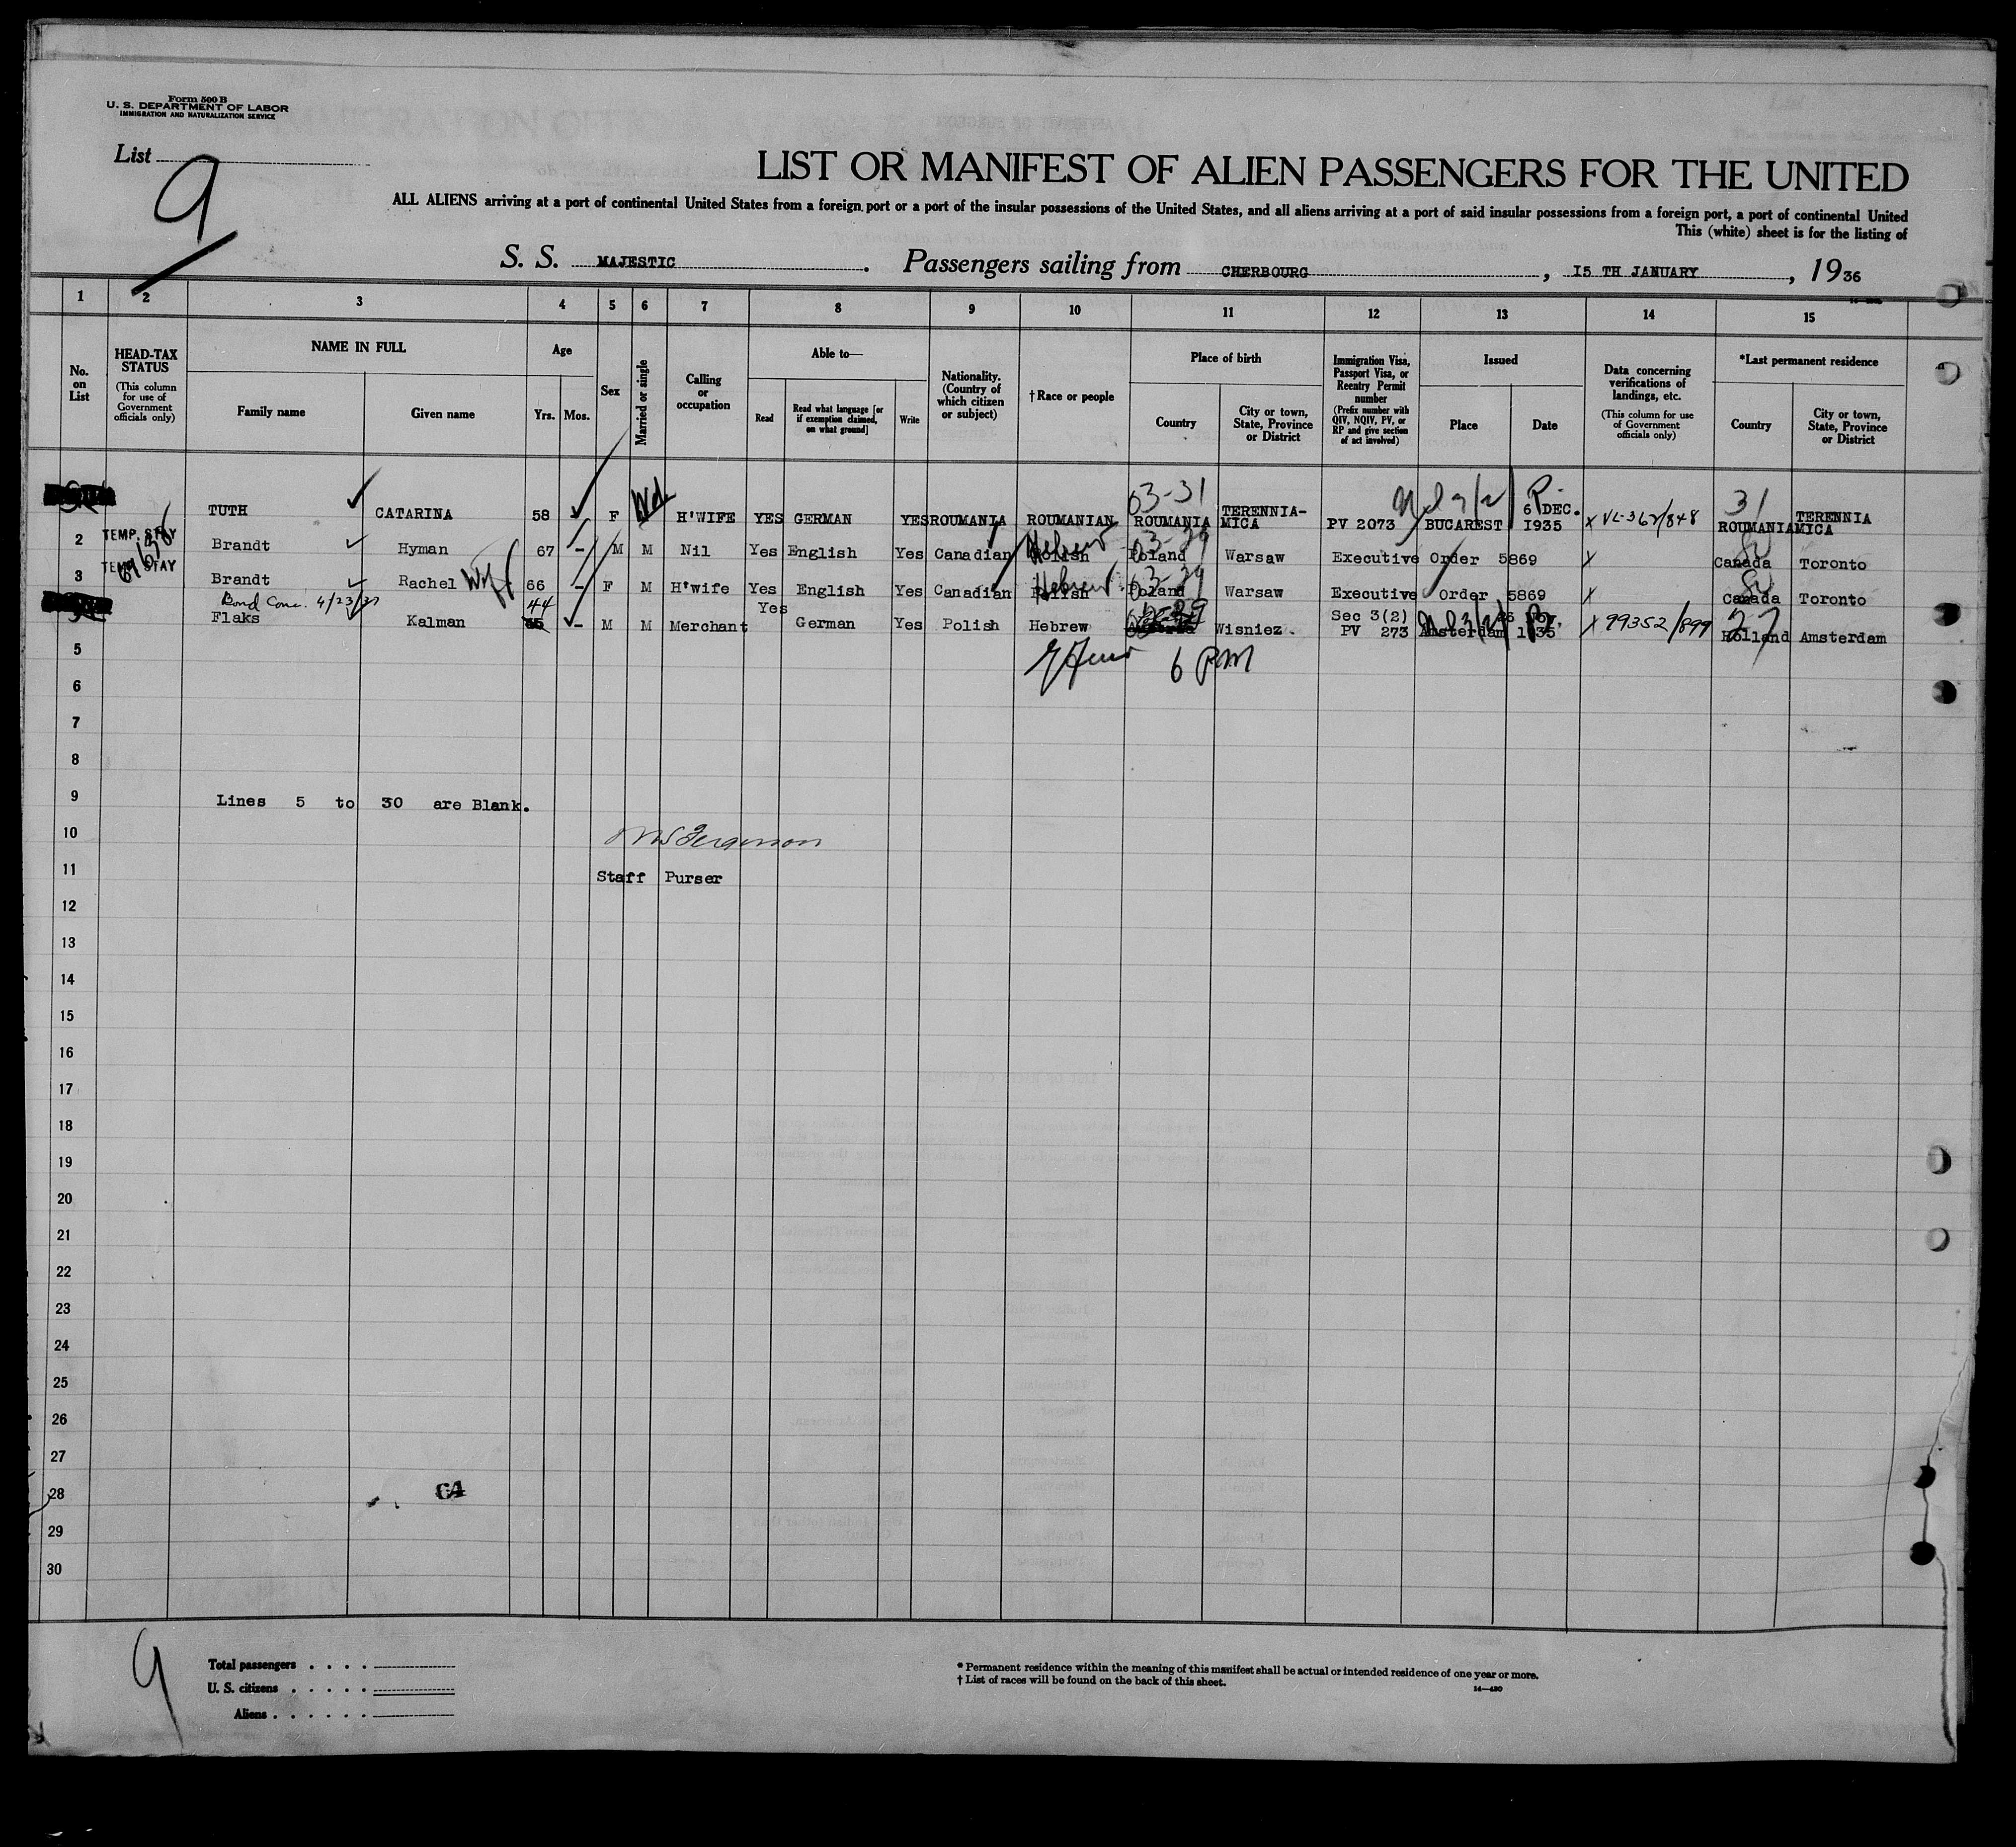 Form 500 B
U. S. DEPARTMENT OF LABOR
IMMIGRATION AND NATURALIZATION SERVICE
List
9
LIST OR MANIFEST OF ALIEN PASSENGERS FOR THE UNITED
ALL ALIENS arriving at a port of continental United States from a foreign port or a port of the insular possessions of the United States, and all aliens arriving at a port of said insular possessions from a foreign port, a port of continental United
This (white) sheet is for the listing of
S. S. MAJESTIC . Passengers sailing from CHERBOURG , 15 TH JANUARY , 1936
1 2 3 4 5 6 7 8 9 10 11 12 13 14 15
No. on List
HEAD-TAX STATUS (This column for use of Government officials only)
NAME IN FULL
Family name Given name
Age
Yrs. Mos.
Sex
Married or single
Calling or occupation
Able to—
Read Read what language [or if exemption claimed, on what ground] Write
Nationality. (Country of which citizen or subject)
†Race or people
Place of birth
Country City or town, State, Province or District
Immigration Visa, Passport Visa, or Reentry Permit number (Prefix number with QIV, NQIV, PV, or RP and give section of act involved)
Issued
Place Date
Data concerning verifications of landings, etc. (This column for use of Government officials only)
*Last permanent residence
Country City or town, State, Province or District
03-31 31
TUTH CATARINA 58 F Wd H'WIFE YES GERMAN YES ROUMANIA ROUMANIAN ROUMANIA TERENNIA-MICA PV 2073 BUCAREST 6 DEC. 1935 x VL-362/848 ROUMANIA TERENNIA MICA
2 TEMP. STAY Brandt Hyman 67 - M M Nil Yes English Yes Canadian Hebrew Poland Warsaw Executive Order 5869 x Canada Toronto
3 TEMP STAY Brandt Rachel Wf 66 - F M H'wife Yes English Yes Canadian Hebrew Poland Warsaw Executive Order 5869 x Canada Toronto
Bond Canc. 4/23/37
Flaks Kalman 44 - M M Merchant Yes German Yes Polish Hebrew Wisniez. Sec 3(2) PV 273 Amsterdam 1935 x 99352/899 27 Holland Amsterdam
6 PM
5
6
7
8
9 Lines 5 to 30 are Blank.
10 Ferguson
11 Staff Purser
12
13
14
15
16
17
18
19
20
21
22
23
24
25
26
27
28
29
30
9
Total passengers . . . .
U. S. citizens . . . . .
Aliens . . . . . .
* Permanent residence within the meaning of this manifest shall be actual or intended residence of one year or more.
† List of races will be found on the back of this sheet.
14—430